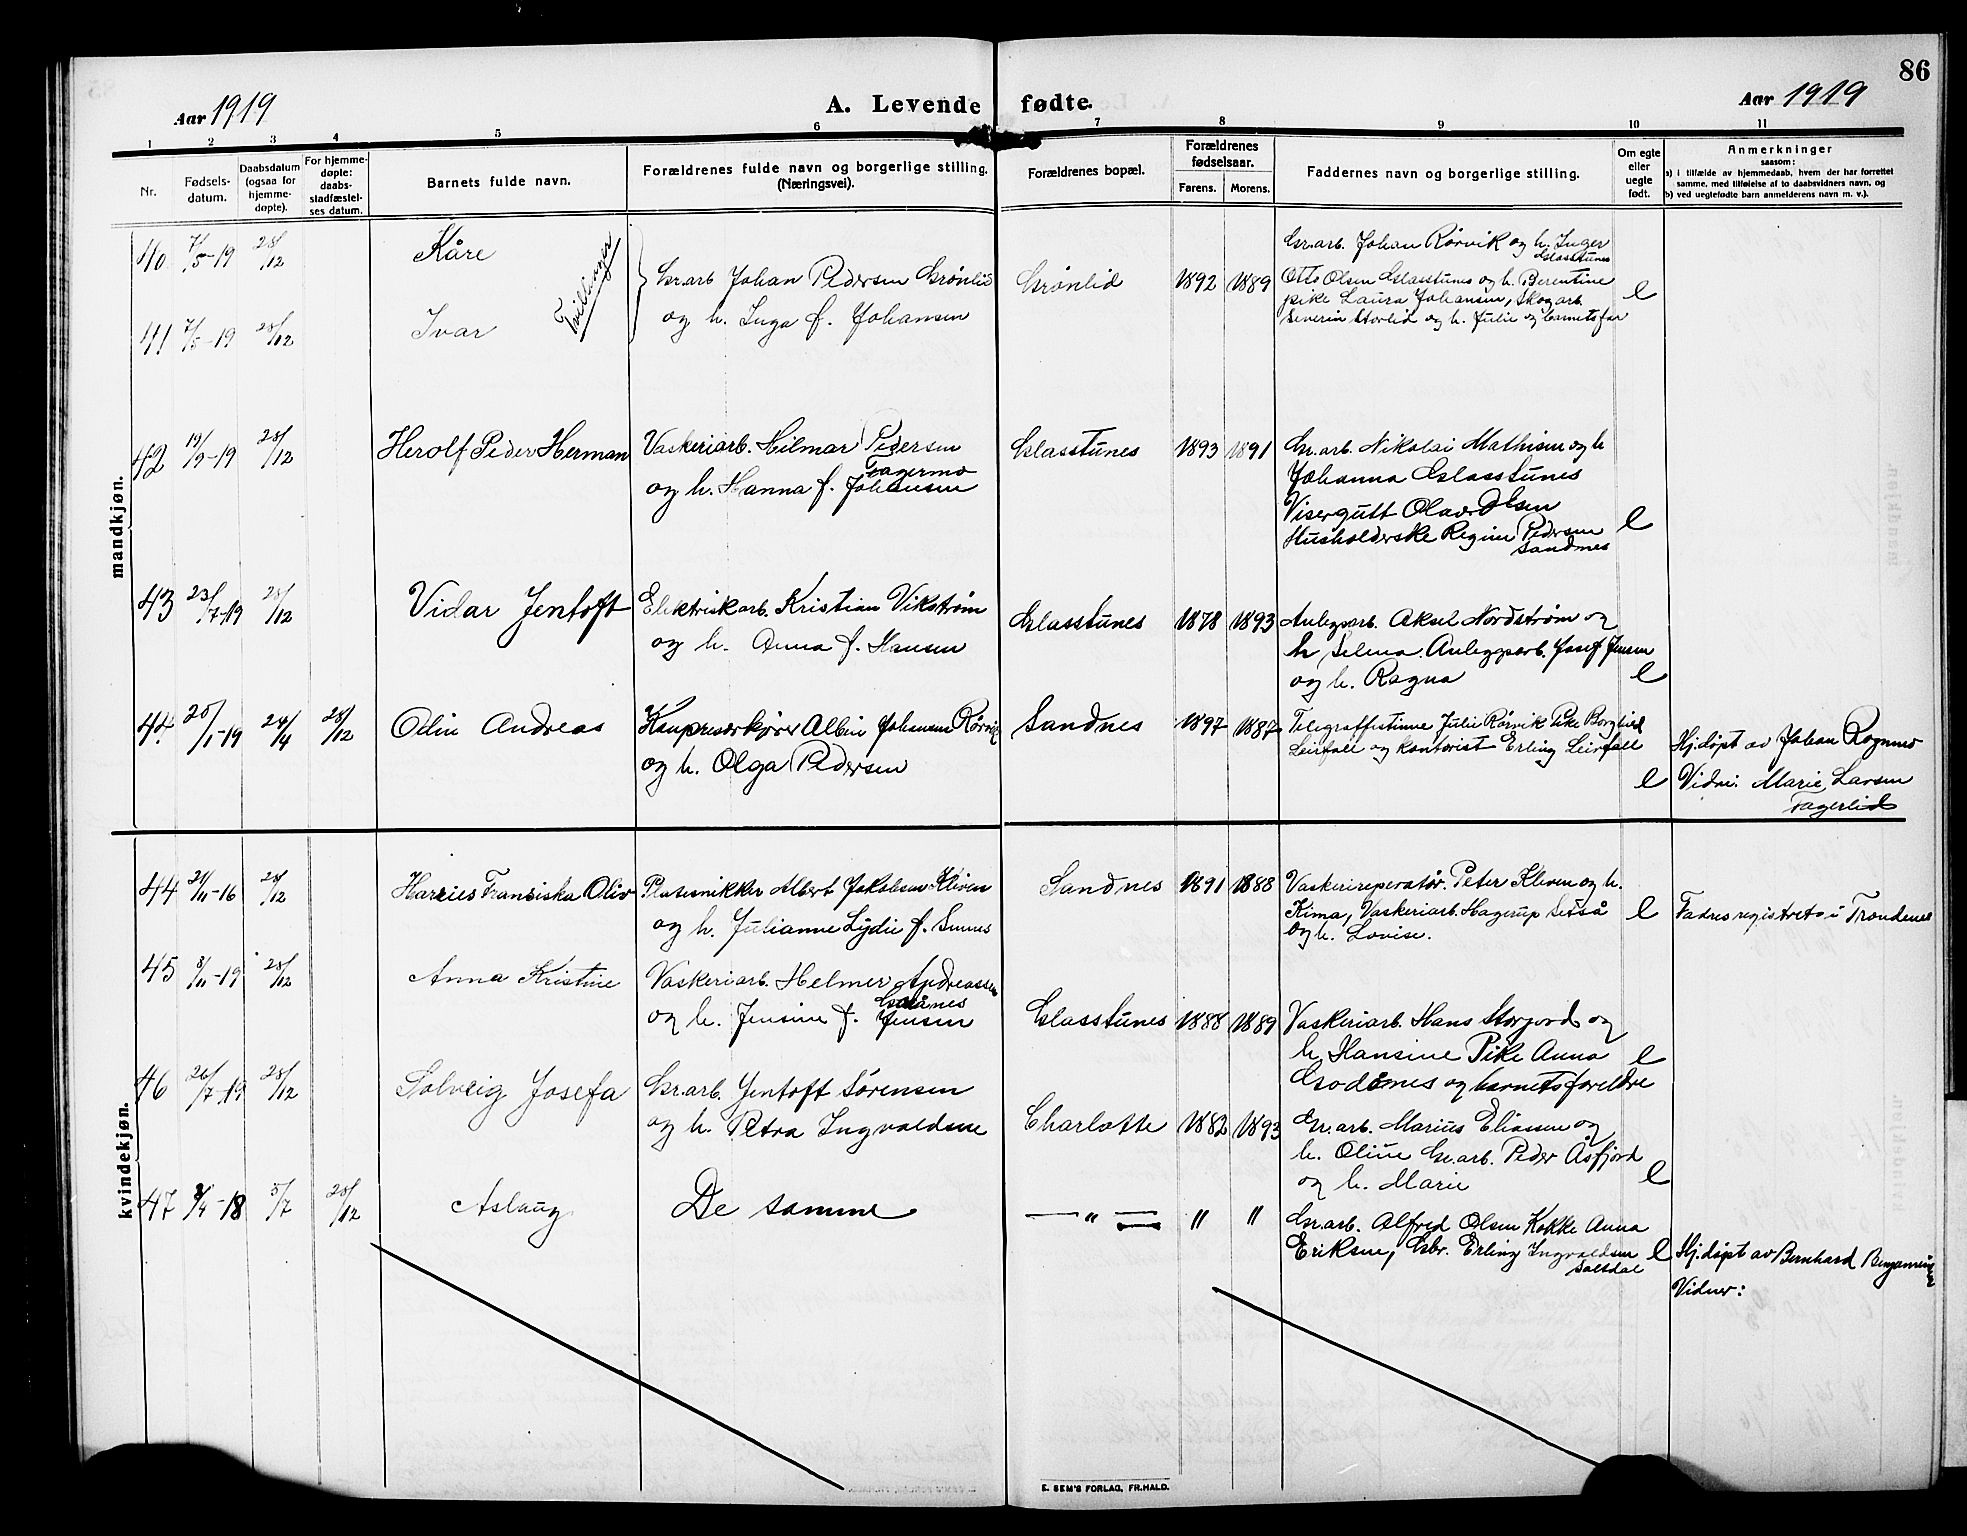 86
Aar 1919
A. Levende fødte.
Aar 1919
1 2 3 4 5 6 7 8 9 10 11
Nr.
Fødsels-
datum.
Daabsdatum
(ogsaa for
hjemme-
døpte).
For hjemme-
døpte:
daabs-
stadfæstel-
ses datum.
Barnets fulde navn.
Forældrenes fulde navn og borgerlige stilling.
(Næringsvei).
Forældrenes bopæl.
Forældrenes
fødselsaar.
Farens. Morens.
Faddernes navn og borgerlige stilling.
Om egte
eller
uegte
født.
Anmerkninger
saasom:
a) i tilfælde av hjemmedaab, hvem der har forrettet
samme, med tilføielse af to daabsvidners navn, og
b) ved uegtefødte barn anmelderens navn m. v.).
mandkjøn.
40 7/5-19 28/12 Kåre
Tvillinger
41 7/5-19 28/12 Ivar
Gr.arb Johan Pedersen Grønlid
og h. Inga f. Johansen
Grønlid 1892 1889
Gr.arb. Johan Rørvik og h. Inger
Glasstunes
Otto Olsen Glasstunes og h. Berentine
pike Laura Johansen, Skogarb.
Severin Storlid og h. Julie og barnets far
e
42 19/9-19 28/12 Herolf Peder Herman
Vaskeriarb. Hilmar Pedersen
Fagermo
og h. Hanna f. Johansen
Glasstunes 1893 1891
Gr.arb. Nikolai Mathisen og h
Johanna Glasstunes
Visergutt Olaver Olsen
Husholderske Regine Pedersen
Sandnes
e
43 23/7-19 28/12 Vidar Jentoft
Elektriskarb. Kristian Vikstrøm
og h. Anna f. Hansen
Glasstunes 1878 1893
Anlegsarb. Aksel Nordstrøm og
h Selma. Anleggsarb. Josef Jensen
og h. Ragna
e
44. 20/1-19 24/4 28/12 Odin Andreas
Kompresorkjører Albin Johansen Rørvik
og h. Olga Pedersen
Sandnes 1897 1887
Telegraffistinne Julie Rørvik Pike Borghild
Leirfall og kontorist Erling Leirfall
e
Hj.døpt av Johan Rognmo
Vidne: Marie Larsen
Fagerlid
kvindekjøn.
44 21/11-16 28/12 Harries Franziska Oliv
Platesnikker Albert Jakobsen Kleven
og h. Julianne Lydie f. Sunnes
Sandnes 1891 1888
Vaskerireperatør. Peter Kleven og h.
Kima, Vaskeriarb. Hagerup Setså
og h. Lovise.
e
Fødres registrert i Trondenes
45 3/11-19 28/12 Anna Kristine
Vaskeriarb. Helmer Andreassen
og h. Jensine f. Jensen
Glasstunes 1888 1889
Vaskeriarb. Hans Storjord og
h Hansine Pike Anna
Godånes og barnets foreldre
e
46 26/7-19 28/12 Solveig Josefa
Gr.arb. Jentoft Sørensen
og h. Petra Ingvaldsen
Charlotte 1882 1893
Gr.arb. Marius Eliassen og
h. Oline Gr.arb. Peder Åsfjord
og h. Marie
e
47 3/4-18 5/7 28/12 Aslaug
De samme
— " — " "
Gr.arb. Alfred Olsen Kokke Anna
Eriksen, Gbr. Erling Ingvaldsen
Saltdal
e
Hj.døpt av Bernhard Benjaminsen
Vidner:
E. SEM'S FORLAG, FR.HALD.